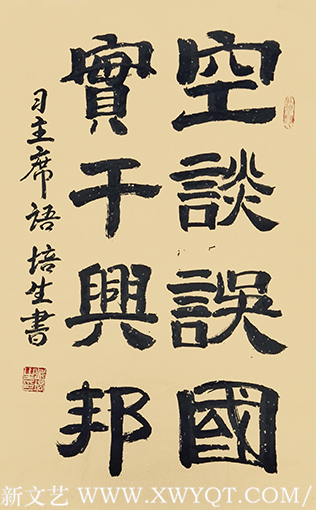 空談誤國
實干興邦
习主席語 培生書
新文艺 WWW.XWYQT.COM